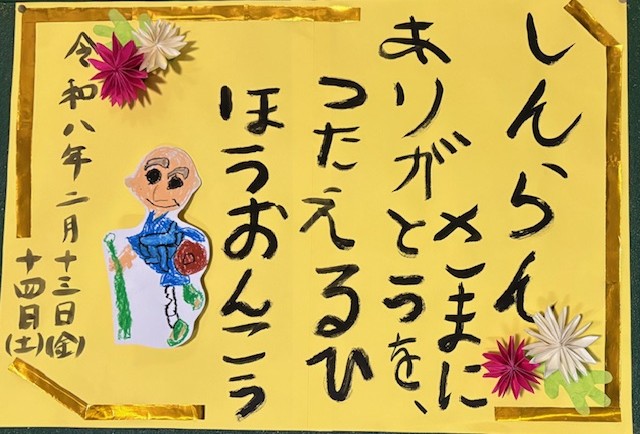 しんらん
さまに
ありがとうを、
つたえるひ
ほうおんこう
令和八年二月十三日(金)
十四日(土)